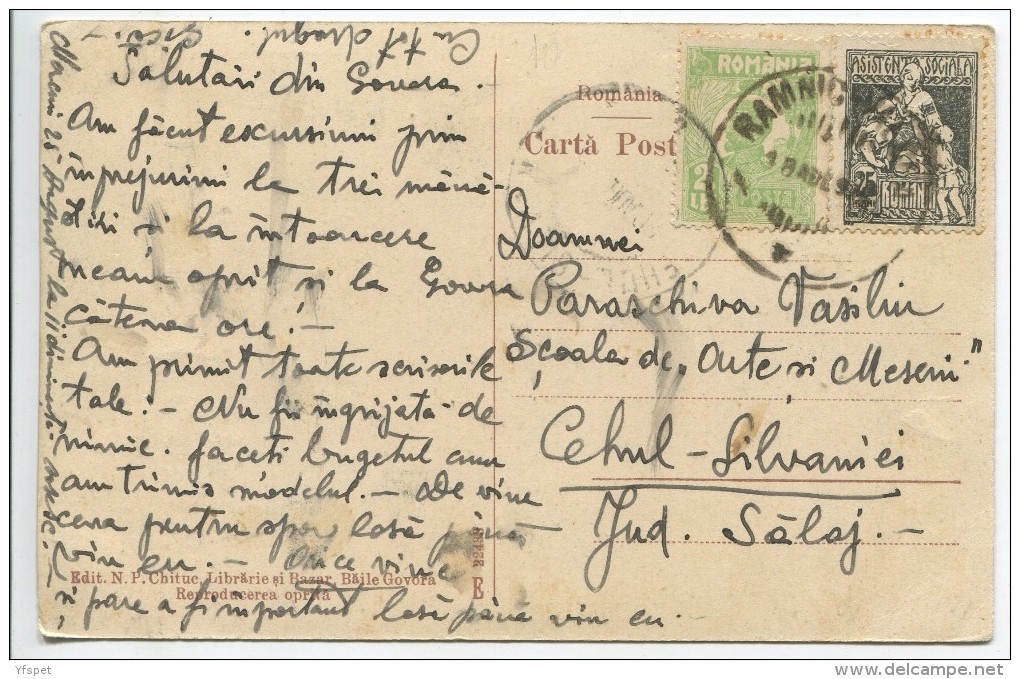 Cu tot dragul.
Salutări din Govora.
Am făcut excursiuni prin
împrejurimi la trei mănă-
stiri și la întoarcere
neam oprit și la Govora
câteva ore! -
Am primit toate scrisorile
tale. - Nu fii îngrijată de
nimic. faceti bugetul cum
am trimis modelul. - De vine
ceva pentru spor lasă până
vin eu. - Orice vine
și pare a fi important lasă până vin eu.
25 August la 11 dimineața
România
Cartă Post
Doamnei
Paraschiva Vasiliu
Școala de „Arte și Meserii"
Cehul-Silvaniei
Jud. Sălaj. -
ROMANIA
2 LEI
ASISTENȚA SOCIALA
25
ROMANIA
RAMNIC
Edit. N. P. Chituc, Librărie și Bazar, Băile Govora
Reproducerea oprită
E
Yfspet
www.delcampe.net